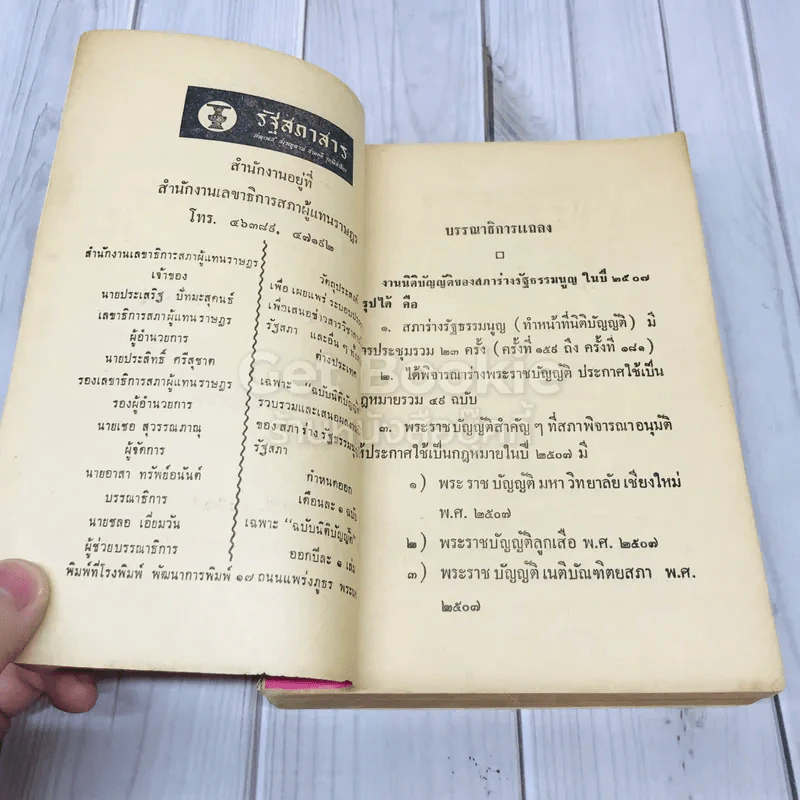 รัฐสภาสาร
สำนักงานอยู่ที่
สำนักงานเลขาธิการสภาผู้แทนราษฎร
โทร. ๔๖๓๘๙, ๔๗๑๙๒
สำนักงานเลขาธิการสภาผู้แทนราษฎร
เจ้าของ
นายประเสริฐ ปัทมะสุคนธ์
เลขาธิการสภาผู้แทนราษฎร
ผู้อำนวยการ
นายประสิทธิ์ ศรีสุชาต
รองเลขาธิการสภาผู้แทนราษฎร
รองผู้อำนวยการ
นายเชอ สุวรรณภาณุ
ผู้จัดการ
นายอาสา ทรัพย์อนันต์
บรรณาธิการ
นายชลอ เอี่ยมวัน
ผู้ช่วยบรรณาธิการ
วัตถุประสงค์
เพื่อ เผยแพร่ ระบอบ
เพื่อเสนอข่าวสารวิชาการ
รัฐสภา และอื่น ๆ
ต่างประเทศ
เฉพาะ "ฉบับนิติบัญญัติ
รวบรวมและเสนอผลงาน
ของ สภา ร่าง รัฐธรรมนูญ
รัฐสภา
กำหนดออก
เดือนละ ๑ ฉบับ
เฉพาะ "ฉบับนิติบัญญัติ"
ออกปีละ ๑ เล่ม
พิมพ์ที่โรงพิมพ์ พัฒนาการพิมพ์ ๑๗ ถนนแพร่งภูธร
บรรณาธิการแถลง
งานนิติบัญญัติของสภาร่างรัฐธรรมนูญ ในปี ๒๕๐๗
รุปได้ คือ
๑. สภาร่างรัฐธรรมนูญ (ทำหน้าที่นิติบัญญัติ) มี
ารประชุมรวม ๒๓ ครั้ง (ครั้งที่ ๑๕๙ ถึง ครั้งที่ ๑๘๑)
๒. ได้พิจารณาร่างพระราชบัญญัติ ประกาศใช้เป็น
ฎหมายรวม ๔๙ ฉบับ
๓. พระราชบัญญัติสำคัญ ๆ ที่สภาพิจารณาอนุมัติ
ห้ประกาศใช้เป็นกฎหมายในปี ๒๕๐๗ มี
๑) พระ ราช บัญญัติ มหา วิทยาลัย เชียงใหม่
พ.ศ. ๒๕๐๗
๒) พระราชบัญญัติลูกเสือ พ.ศ. ๒๕๐๗
๓) พระราช บัญญัติ เนติบัณฑิตยสภา พ.ศ.
๒๕๐๗